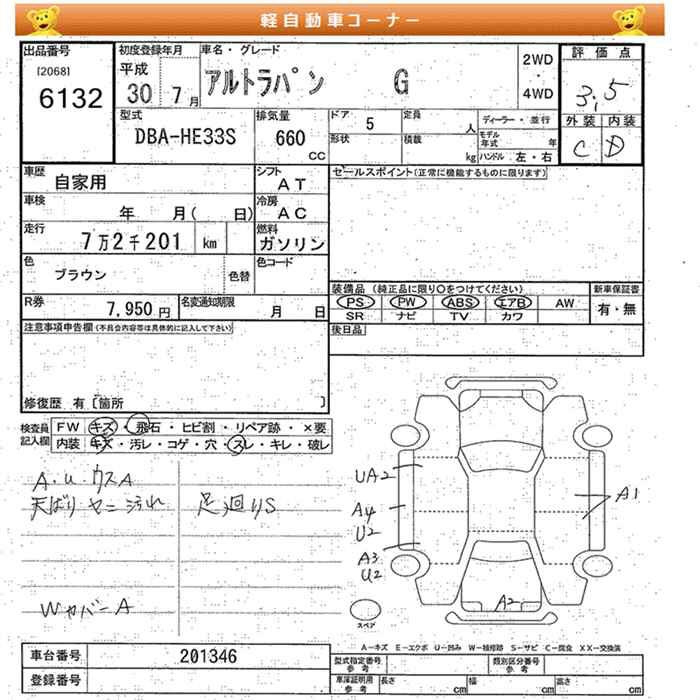 軽自動車コーナー
出品番号
[2068]
6132
初度登録年月
平成
30 7月
車名・グレード
アルトラパン G
2WD
・
4WD
評価点
3.5
外装 内装
C D
型式
DBA-HE33S
排気量
660
CC
ドア 5
形状
定員 人
積載 kg
ディーラー・並行
モデル年式 年
ハンドル 左・右
車歴
自家用
シフト
AT
車検
年 月( 日)
冷房
AC
走行
7万2千201 km
燃料
ガソリン
色
ブラウン
色替
色コード
R券
7,950円
名変通知期限
月 日
セールスポイント(正常に機能するものに限ります)
装備品 (純正品に限り○をつけてください)
PS PW ABS エアB AW
SR ナビ TV カワ
新車保証書
有・無
後日品
注意事項申告欄(不具合内容等は具体的に記入して下さい)
修復歴 有 [箇所 ]
検査員記入欄
FW キズ・飛石・ヒビ割・リペア跡・×要
内装 キズ・汚レ・コゲ・穴・スレ・キレ・破レ
A.U ウスA
天ばり ヤニ 汚れ
足廻りS
WカバーA
UA2
A4
U2
A3
U2
A1
A2
スペア
A-キズ E-エクボ U-凹み W-補修跡 S-サビ C-腐食 XX-交換済
車台番号
201346
登録番号
型式指定番号
参考
類別区分番号
参考
車庫証明用
参考
長さ cm
幅 cm
高さ cm